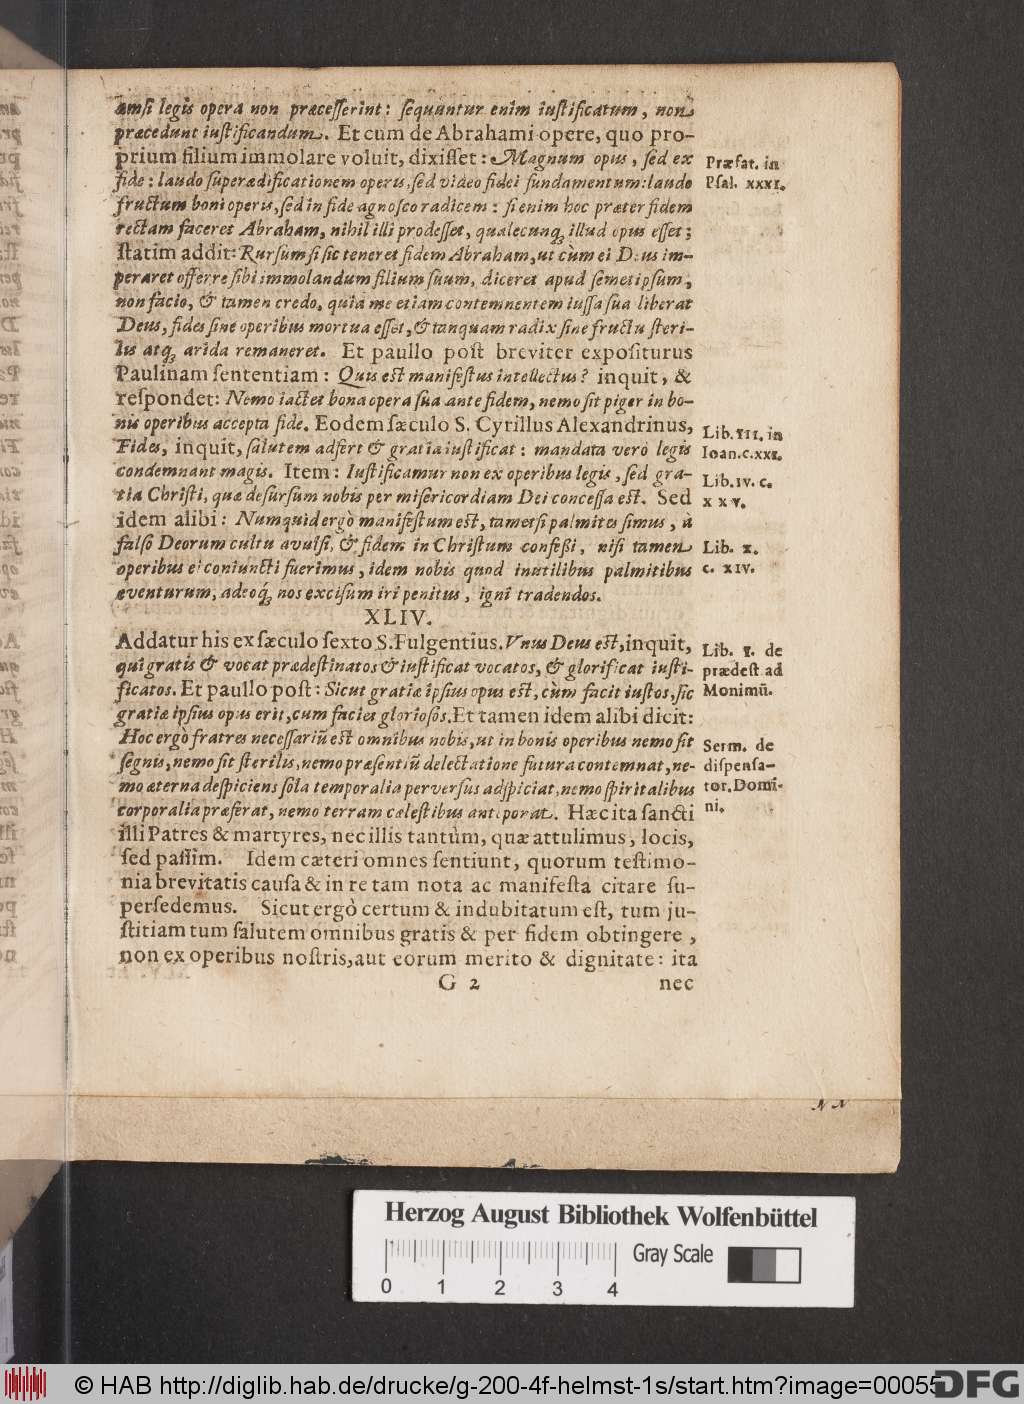 amsi legis opera non præcesserint: sequuntur enim iustificatum, non
præcedunt iustificandum. Et cum de Abrahami opere, quo pro-
prium filium immolare voluit, dixisset: Magnum opus, sed ex
fide: laudo superædificationem operis, sed video fidei fundamentum: laudo
fructum boni operis, sed in fide agnosco radicem: si enim hoc præter fidem
rectam faceret Abraham, nihil illi prodesset, qualecunq; illud opus esset;
statim addit: Rursum si sic teneret fidem Abraham, ut cùm ei Deus im-
peraret offerre sibi immolandum filium suum, diceret apud semetipsum,
non facio, & tamen credo, quia me etiam contemnentem iussa sua liberat
Deus, fides sine operibus mortua esset, & tanquam radix sine fructu steri-
lis atq; arida remaneret. Et paullo post breviter expositurus
Paulinam sententiam: Quis est manifestus intellectus? inquit, &
respondet: Nemo iactet bona opera sua ante fidem, nemo sit piger in bo-
nis operibus accepta fide. Eodem sæculo S. Cyrillus Alexandrinus,
Fides, inquit, salutem adfert & gratia iustificat: mandata verò legis
condemnant magis. Item: Iustificamur non ex operibus legis, sed gra-
tia Christi, quæ desursum nobis per misericordiam Dei concessa est. Sed
idem alibi: Numquid ergò manifestum est, tametsi palmites simus, à
falso Deorum cultu avulsi, & fidem in Christum confeßi, nisi tamen
operibus ei coniuncti fuerimus, idem nobis quod inutilibus palmitibus
eventurum, adeoq; nos excisum iri penitus, igni tradendos.
XLIV.
Addatur his ex sæculo sexto S. Fulgentius. Vnus Deus est, inquit,
qui gratis & vocat prædestinatos & iustificat vocatos, & glorificat iusti-
ficatos. Et paullo post: Sicut gratiæ ipsius opus est, cùm facit iustos, sic
gratiæ ipsius opus erit, cum faciet gloriosos. Et tamen idem alibi dicit:
Hoc ergò fratres necessariũ est omnibus nobis, ut in bonis operibus nemo sit
segnis, nemo sit sterilis, nemo præsentiũ delectatione futura contemnat, ne-
mo æterna despiciens sola temporalia perversus adspiciat, nemo spiritalibus
corporalia præferat, nemo terram cælestibus anteponat. Hæc ita sancti
illi Patres & martyres, nec illis tantùm, quæ attulimus, locis,
sed passim. Idem cæteri omnes sentiunt, quorum testimo-
nia brevitatis causa & in re tam nota ac manifesta citare su-
persedemus. Sicut ergò certum & indubitatum est, tum ju-
stitiam tum salutem omnibus gratis & per fidem obtingere,
non ex operibus nostris, aut eorum merito & dignitate: ita
G 2 nec
Præfat. in
Psal. xxxi.
Lib. III. in
Ioan. c. xxi.
Lib. iv. c.
xxv.
Lib. x.
c. xiv.
Lib. 1. de
prædest ad
Monimũ.
Serm. de
dispensa-
tor. Domi-
ni.
Herzog August Bibliothek Wolfenbüttel
Gray Scale
0 1 2 3 4
© HAB http://diglib.hab.de/drucke/g-200-4f-helmst-1s/start.htm?image=00055
DFG